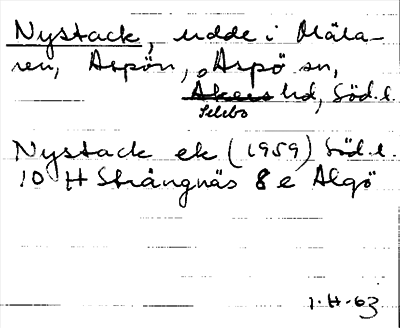 Nystack, udde i Mäla-
ren, Aspön, Aspö sn,
Åkers hd, Söd.l.
Selebo
Nystack ek (1959) Söd.l.
10 H Strängnäs 8 e Algö
1-H-63